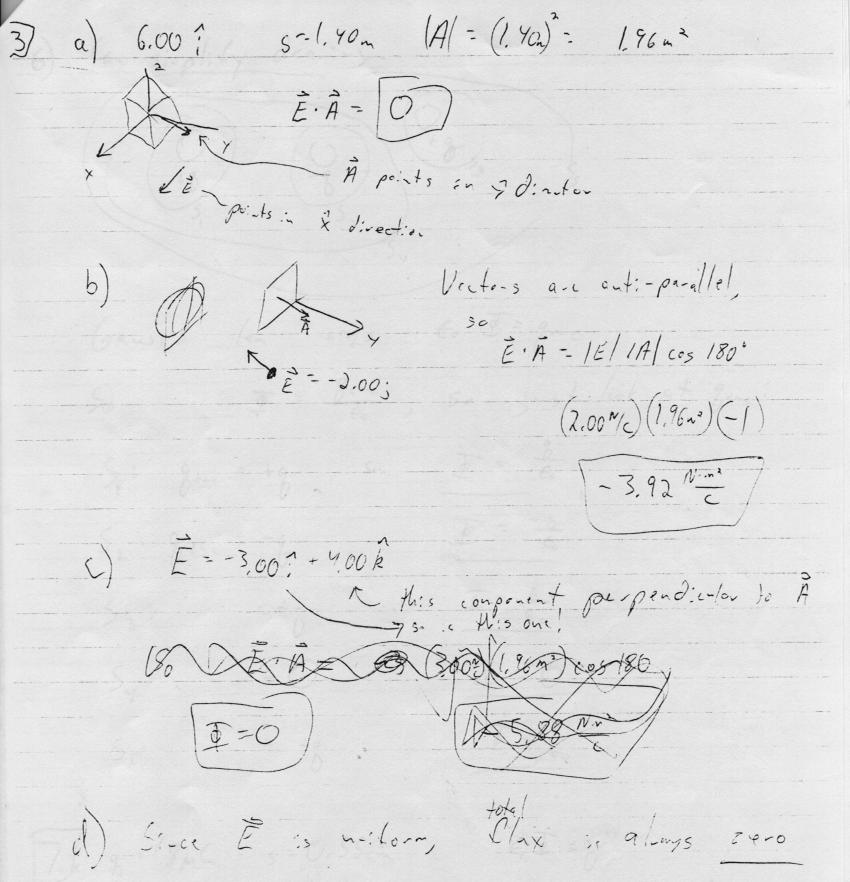 3) a) 6.00 î s=1.40m |A| = (1.40m)² = 1.96 m²
z
E⃗ · A⃗ = 0
y
x
A⃗ points in ŷ direction
E⃗
points in x̂ direction
b) Vectors are anti-parallel,
so
A⃗ y
E⃗ · A⃗ = |E| |A| cos 180°
E⃗ = -2.00j
(2.00 N/C)(1.96m²)(-1)
-3.92 N·m²/C
c) E⃗ = -3.00î + 4.00k̂
this component perpendicular to A⃗
so is this one!
So E⃗ · A⃗ = (3.00)(1.96m²) cos 180
Φ = 0 - 5.88 N·m²/C
d) Since E⃗ is uniform, total flux is always zero